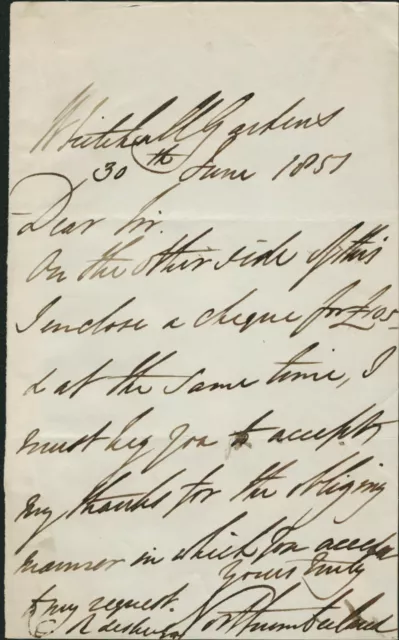 Whitehall Gardens
30th June 1851
Dear Sir.
On the other side of this
I enclose a cheque for £105
& at the same time, I
must beg you to accept
my thanks for the obliging
manner in which you acceded
Yours truly
to my request.
Northumberland